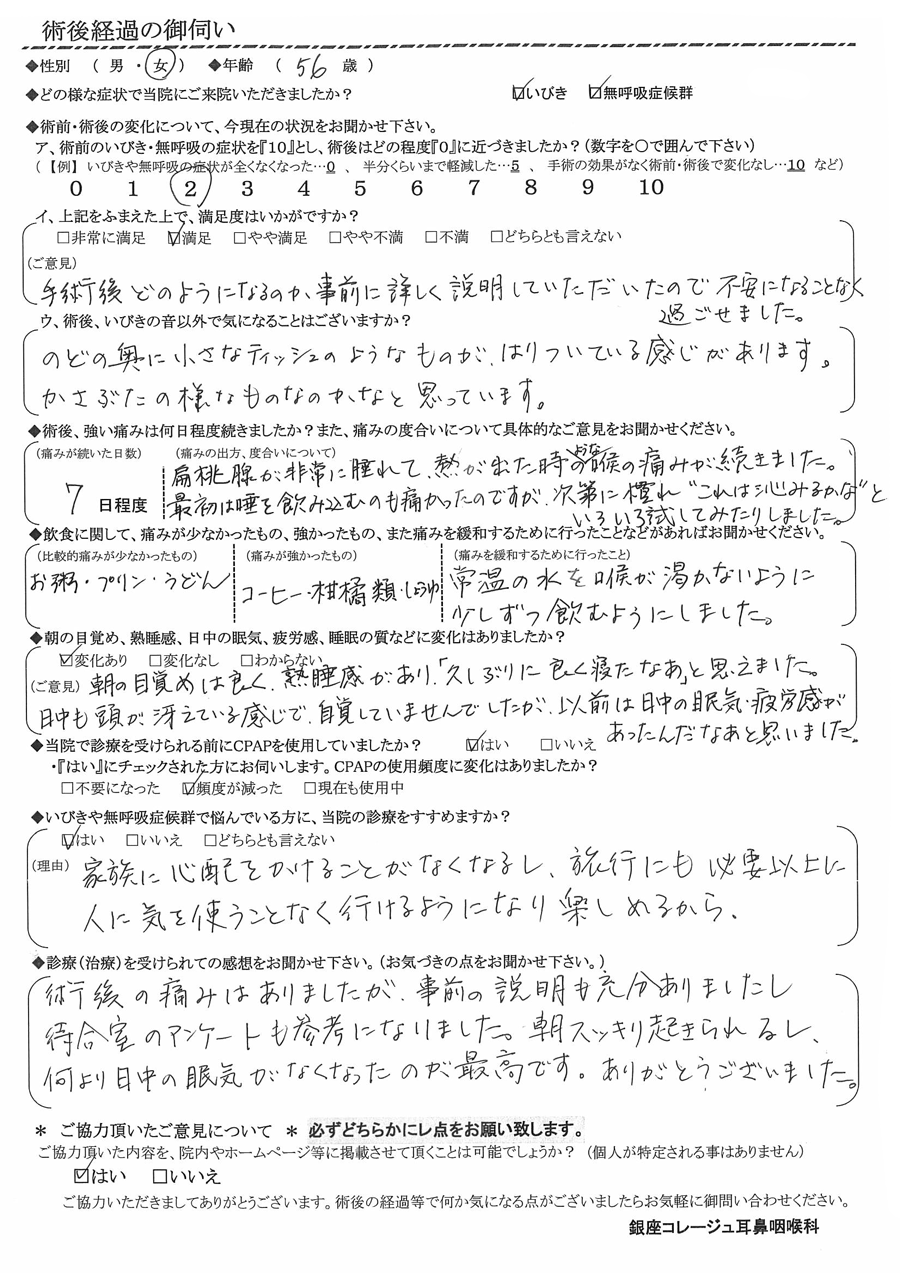 術後経過の御伺い
◆性別 （ 男 ・ 女 ） ◆年齢 （ 56 歳 ）
◆どの様な症状で当院にご来院いただきましたか？ ☑いびき ☑無呼吸症候群
◆術前・術後の変化について、今現在の状況をお聞かせ下さい。
ア、術前のいびき・無呼吸の症状を『10』とし、術後はどの程度『0』に近づきましたか？（数字を〇で囲んで下さい）
（ 【例】 いびきや無呼吸の症状が全くなくなった…0 、 半分くらいまで軽減した…5 、 手術の効果がなく術前・術後で変化なし…10 など）
0 1 2 3 4 5 6 7 8 9 10
イ、上記をふまえた上で、満足度はいかがですか？
□非常に満足 ☑満足 □やや満足 □やや不満 □不満 □どちらとも言えない
（ご意見）
手術後どのようになるのか、事前に詳しく説明していただいたので不安になることなく
過ごせました。
ウ、術後、いびきの音以外で気になることはございますか？
のどの奥に小さなティッシュのようなものが、はりついている感じがあります。
かさぶたの様なものなのかなと思っています。
◆術後、強い痛みは何日程度続きましたか？また、痛みの度合いについて具体的なご意見をお聞かせください。
（痛みが続いた日数） （痛みの出方、度合いについて）
7 日程度
扁桃腺が非常に腫れて、熱が出た時のような喉の痛みが続きました。
最初は唾を飲み込むのも痛かったのですが、次第に慣れ"これは沁みるかな"と
いろいろ試してみたりしました。
◆飲食に関して、痛みが少なかったもの、強かったもの、また痛みを緩和するために行ったことなどがあればお聞かせください。
（比較的痛みが少なかったもの） （痛みが強かったもの） （痛みを緩和するために行ったこと）
お粥・プリン・うどん
コーヒー・柑橘類・しょうゆ
常温の水を喉が渇かないように
少しずつ飲むようにしました。
◆朝の目覚め、熟睡感、日中の眠気、疲労感、睡眠の質などに変化はありましたか？
☑変化あり □変化なし □わからない
（ご意見） 朝の目覚めは良く、熟睡感があり、「久しぶりに良く寝たなあ」と思えました。
日中も頭が冴えている感じで、自覚していませんでしたが、以前は日中の眠気・疲労感が
あったんだなあと思いました。
◆当院で診療を受けられる前にCPAPを使用していましたか？ ☑はい □いいえ
・『はい』にチェックされた方にお伺いします。CPAPの使用頻度に変化はありましたか？
□不要になった ☑頻度が減った □現在も使用中
◆いびきや無呼吸症候群で悩んでいる方に、当院の診療をすすめますか？
☑はい □いいえ □どちらとも言えない
（理由） 家族に心配をかけることがなくなるし、旅行にも必要以上に
人に気を使うことなく行けるようになり楽しめるから、
◆診療（治療）を受けられての感想をお聞かせ下さい。（お気づきの点をお聞かせ下さい。）
術後の痛みはありましたが、事前の説明も充分ありましたし
待合室のアンケートも参考になりました。朝スッキリ起きられるし、
何より日中の眠気がなくなったのが最高です。ありがとうございました。
＊ ご協力頂いたご意見について ＊ 必ずどちらかにレ点をお願い致します。
ご協力頂いた内容を、院内やホームページ等に掲載させて頂くことは可能でしょうか？ （個人が特定される事はありません）
☑はい □いいえ
ご協力いただきましてありがとうございます。術後の経過等で何か気になる点がございましたらお気軽に御問い合わせください。
銀座コレージュ耳鼻咽喉科